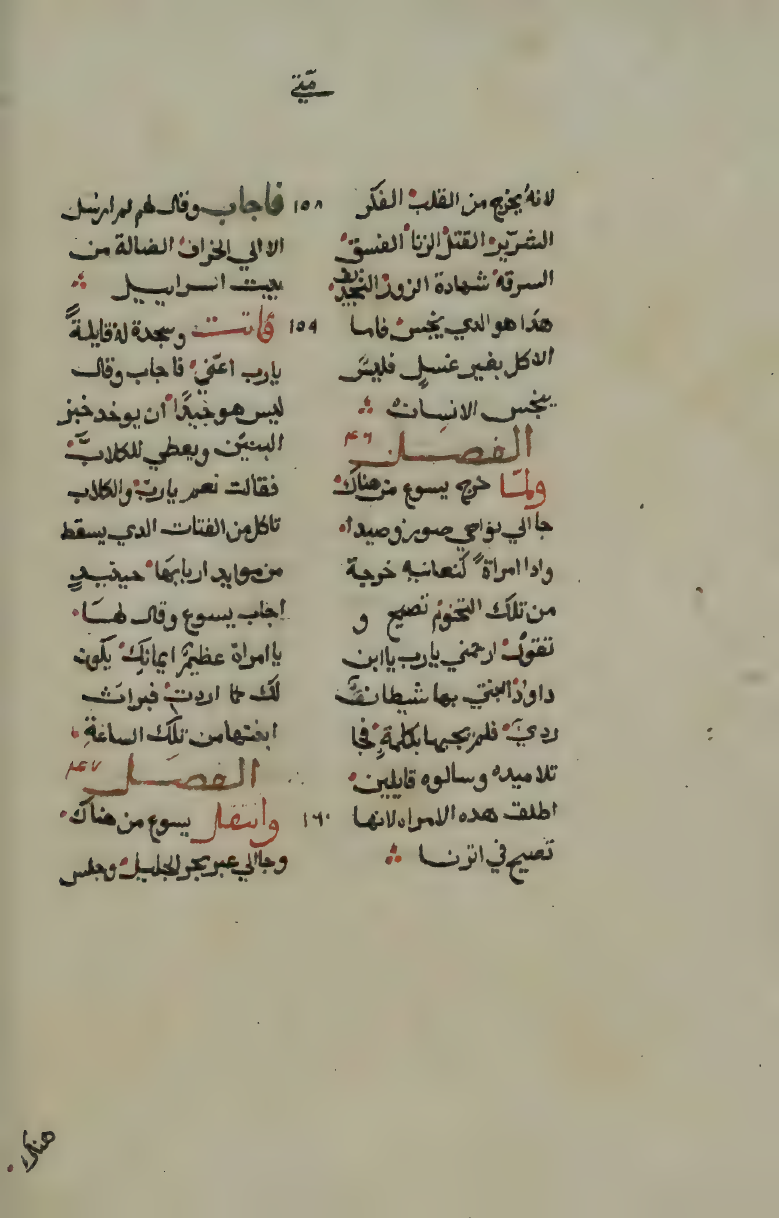 متي
لانه يخرج من القلب الفكر
الشرير القتل الزنا الفسق
السرقه شهادة الزور التجديف
هذا هو الدي ينجس فاما
الاكل بغير غسل فليس
ينجس الانسان
الفصل ٤٦
ولما خرج يسوع من هناك
جا الي نواحي صور وصيدا
وادا امراة كنعانيه خرجة
من تلك التخوم تصيح و
تقول ارحمني يارب ياابن
داوود ابنتي بها شيطان
ردي فلم يجبها بكلمة فجا
تلاميده وسالوه قايلين
اطلق هده الامراه لانها
تصيح في اثرنا
١٥٨ فاجاب وقال لهم لم ارسل
الا الي الخراف الضالة من
بيت اسراييل
١٥٩ فاتت وسجدة له قايلة
يارب اعني فاجاب وقال
ليس هو جيدا ان يوخد خبز
البنين ويعطي للكلاب
فقالت نعم يارب والكلاب
تاكل من الفتات الدي يسقط
من موايد اربابها حينيد
اجاب يسوع وقال لها
ياامراة عظيم ايمانك يكون
لك كما اردت فبرات
ابنتها من تلك الساعة
الفصل ٤٧
١٦٠ وانتقل يسوع من هناك
وجا الي عبر بحر الجليل وجلس
هناك